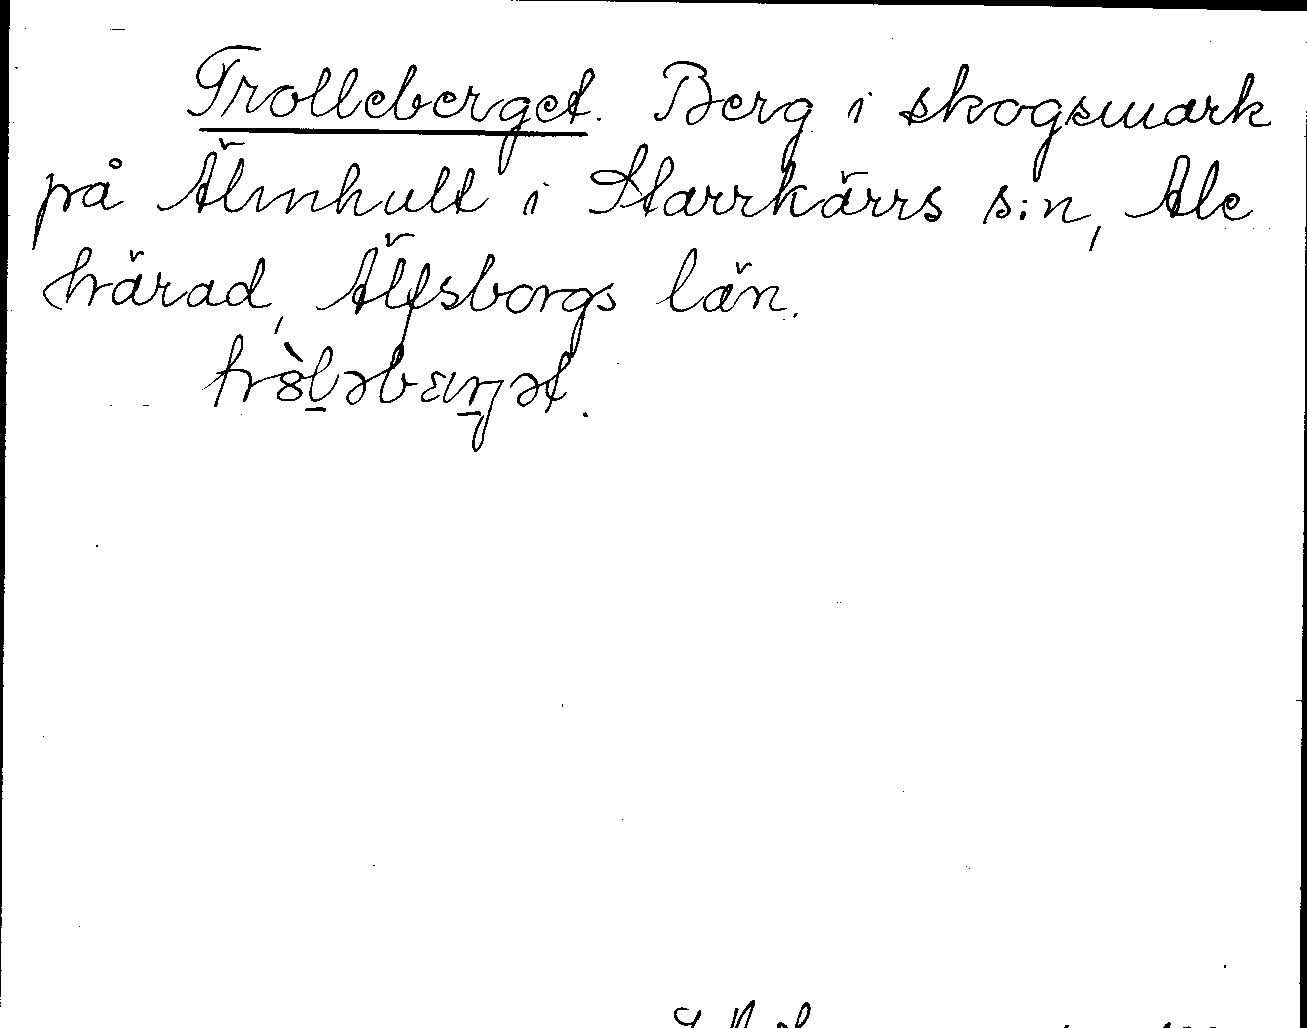 Trolleberget. Berg i skogsmark
på Älmhult i Starrkärrs s:n, Ale
härad, Älfsborgs län.